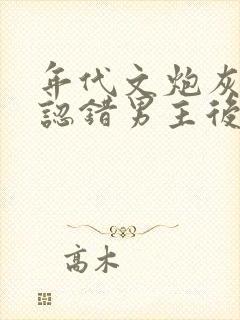 年代文炮灰
認錯男主後
高木